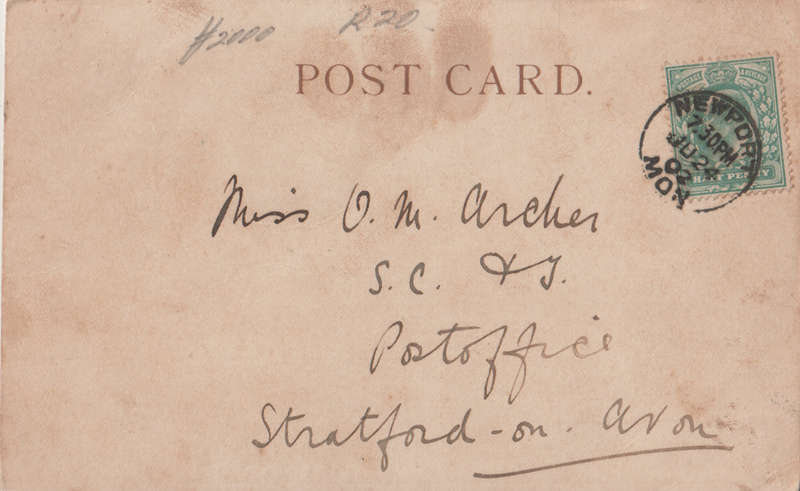 #2000 R20
POST CARD.
POSTAGE & REVENUE
NEWPORT
7.30PM
JU 24
02
MON
HALF PENNY
Miss O. M. Archer
S. C. & T.
Postoffice
Stratford-on-Avon